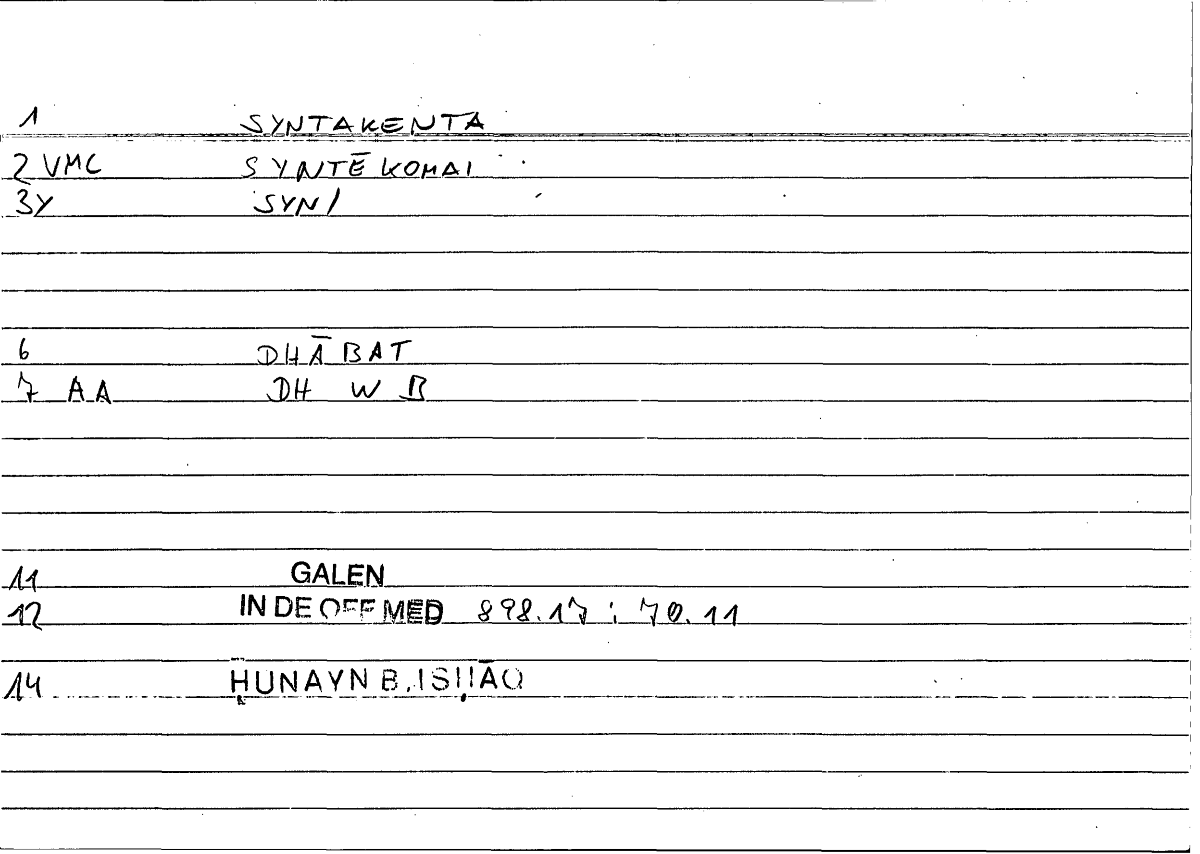 1 SYNTAKENTA
2 VMC SYNTĒKOMAI
3Y SYN/
6 DHĀBAT
7 AA DH W B
11 GALEN
12 IN DE OFF MED 898.17 ; 70.11
14 ḤUNAYN B. ISḤĀQ